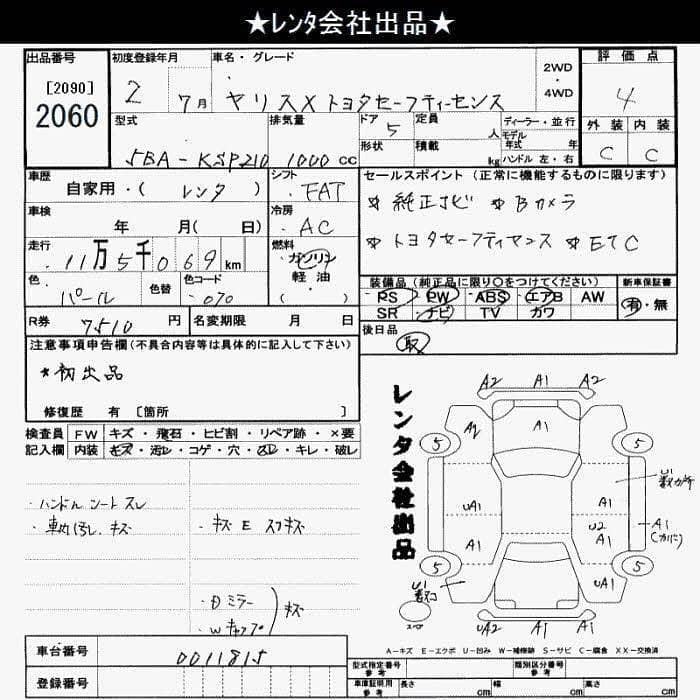 ★レンタ会社出品★
出品番号
[2090]
2060
初度登録年月
2 7月
車名・グレード
ヤリス X トヨタセーフティーセンス
2WD
・
4WD
評価点
4
外装 内装
C C
型式
5BA-KSP210
排気量
1000 cc
ドア 5
形状
定員 人
積載 kg
ディーラー・並行
モデル年式 年
ハンドル 左・右
車歴
自家用・( レンタ )
シフト
FAT
車検
年 月( 日)
冷房
AC
走行
11万5千069km
燃料
ガソリン
軽・油
( )
色
パール
色替
色コード
070
セールスポイント (正常に機能するものに限ります)
* 純正ナビ * Bカメラ
* トヨタセーフティセンス * ETC
装備品 (純正品に限り○をつけてください)
PS PW ABS エアB AW
SR ナビ TV カワ
新車保証書
有・無
R券 7510 円
名変期限 月 日
後日品
取
注意事項申告欄(不具合内容等は具体的に記入して下さい)
* 初出品
修復歴 有 [箇所 ]
検査員記入欄
FW キズ・飛石・ヒビ割・リペア跡・×要
内装 キズ・汚レ・コゲ・穴・スレ・キレ・破レ
・ハンドル シート スレ
・車内 キズ
・キズ E スリキズ
・Dミラー
・Wキャップ
キズ
レンタ会社出品
A2 A1 A2
A2 A1
5 5
UA1 A1
A1 U2
A1 A1
U1
A1
5 5
U1 UA1
UA2 A1 A1
A-キズ E-エクボ U-凹み W-補修跡 S-サビ C-腐食 XX-交換済
車台番号
0011815
登録番号
型式指定番号 参考
類別区分番号 参考
車庫証明用 参考
長さ cm 幅 cm 高さ cm